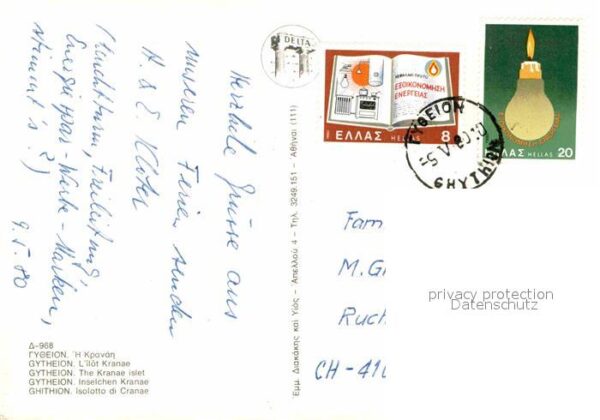 Herzliche Grüsse aus
unseren Ferien senden
H. & E. Kloter
(Leuchtturm, Freileitung,
Energiespar-Werbe-Marken,
stimmt's?)
9.5.80
Δ-968
ΓΥΘΕΙΟΝ. Ἡ Κρανάη
GYTHEION. L'îlôt Kranae
GYTHEION. The Kranae islet
GYTHEION. Inselchen Kranae
GHITHION. Isolotto di Cranae
Εμμ. Διακάκης καί Υἱός - Ἀπελλοῦ 4 - Τηλ. 3249.151 - Ἀθῆναι (111)
DELTA
ΚΕΦΑΛΑΙΟ ΠΡΩΤΟ
ΕΞΟΙΚΟΝΟΜΗΣΗ
ΕΝΕΡΓΕΙΑΣ
ΕΛΛΑΣ HELLAS 8
ΕΛΛΑΣ HELLAS 20
ΓΥΘΕΙΟΝ
GHYTHION
Fam
M. G
Ruch
CH-41
privacy protection
Datenschutz